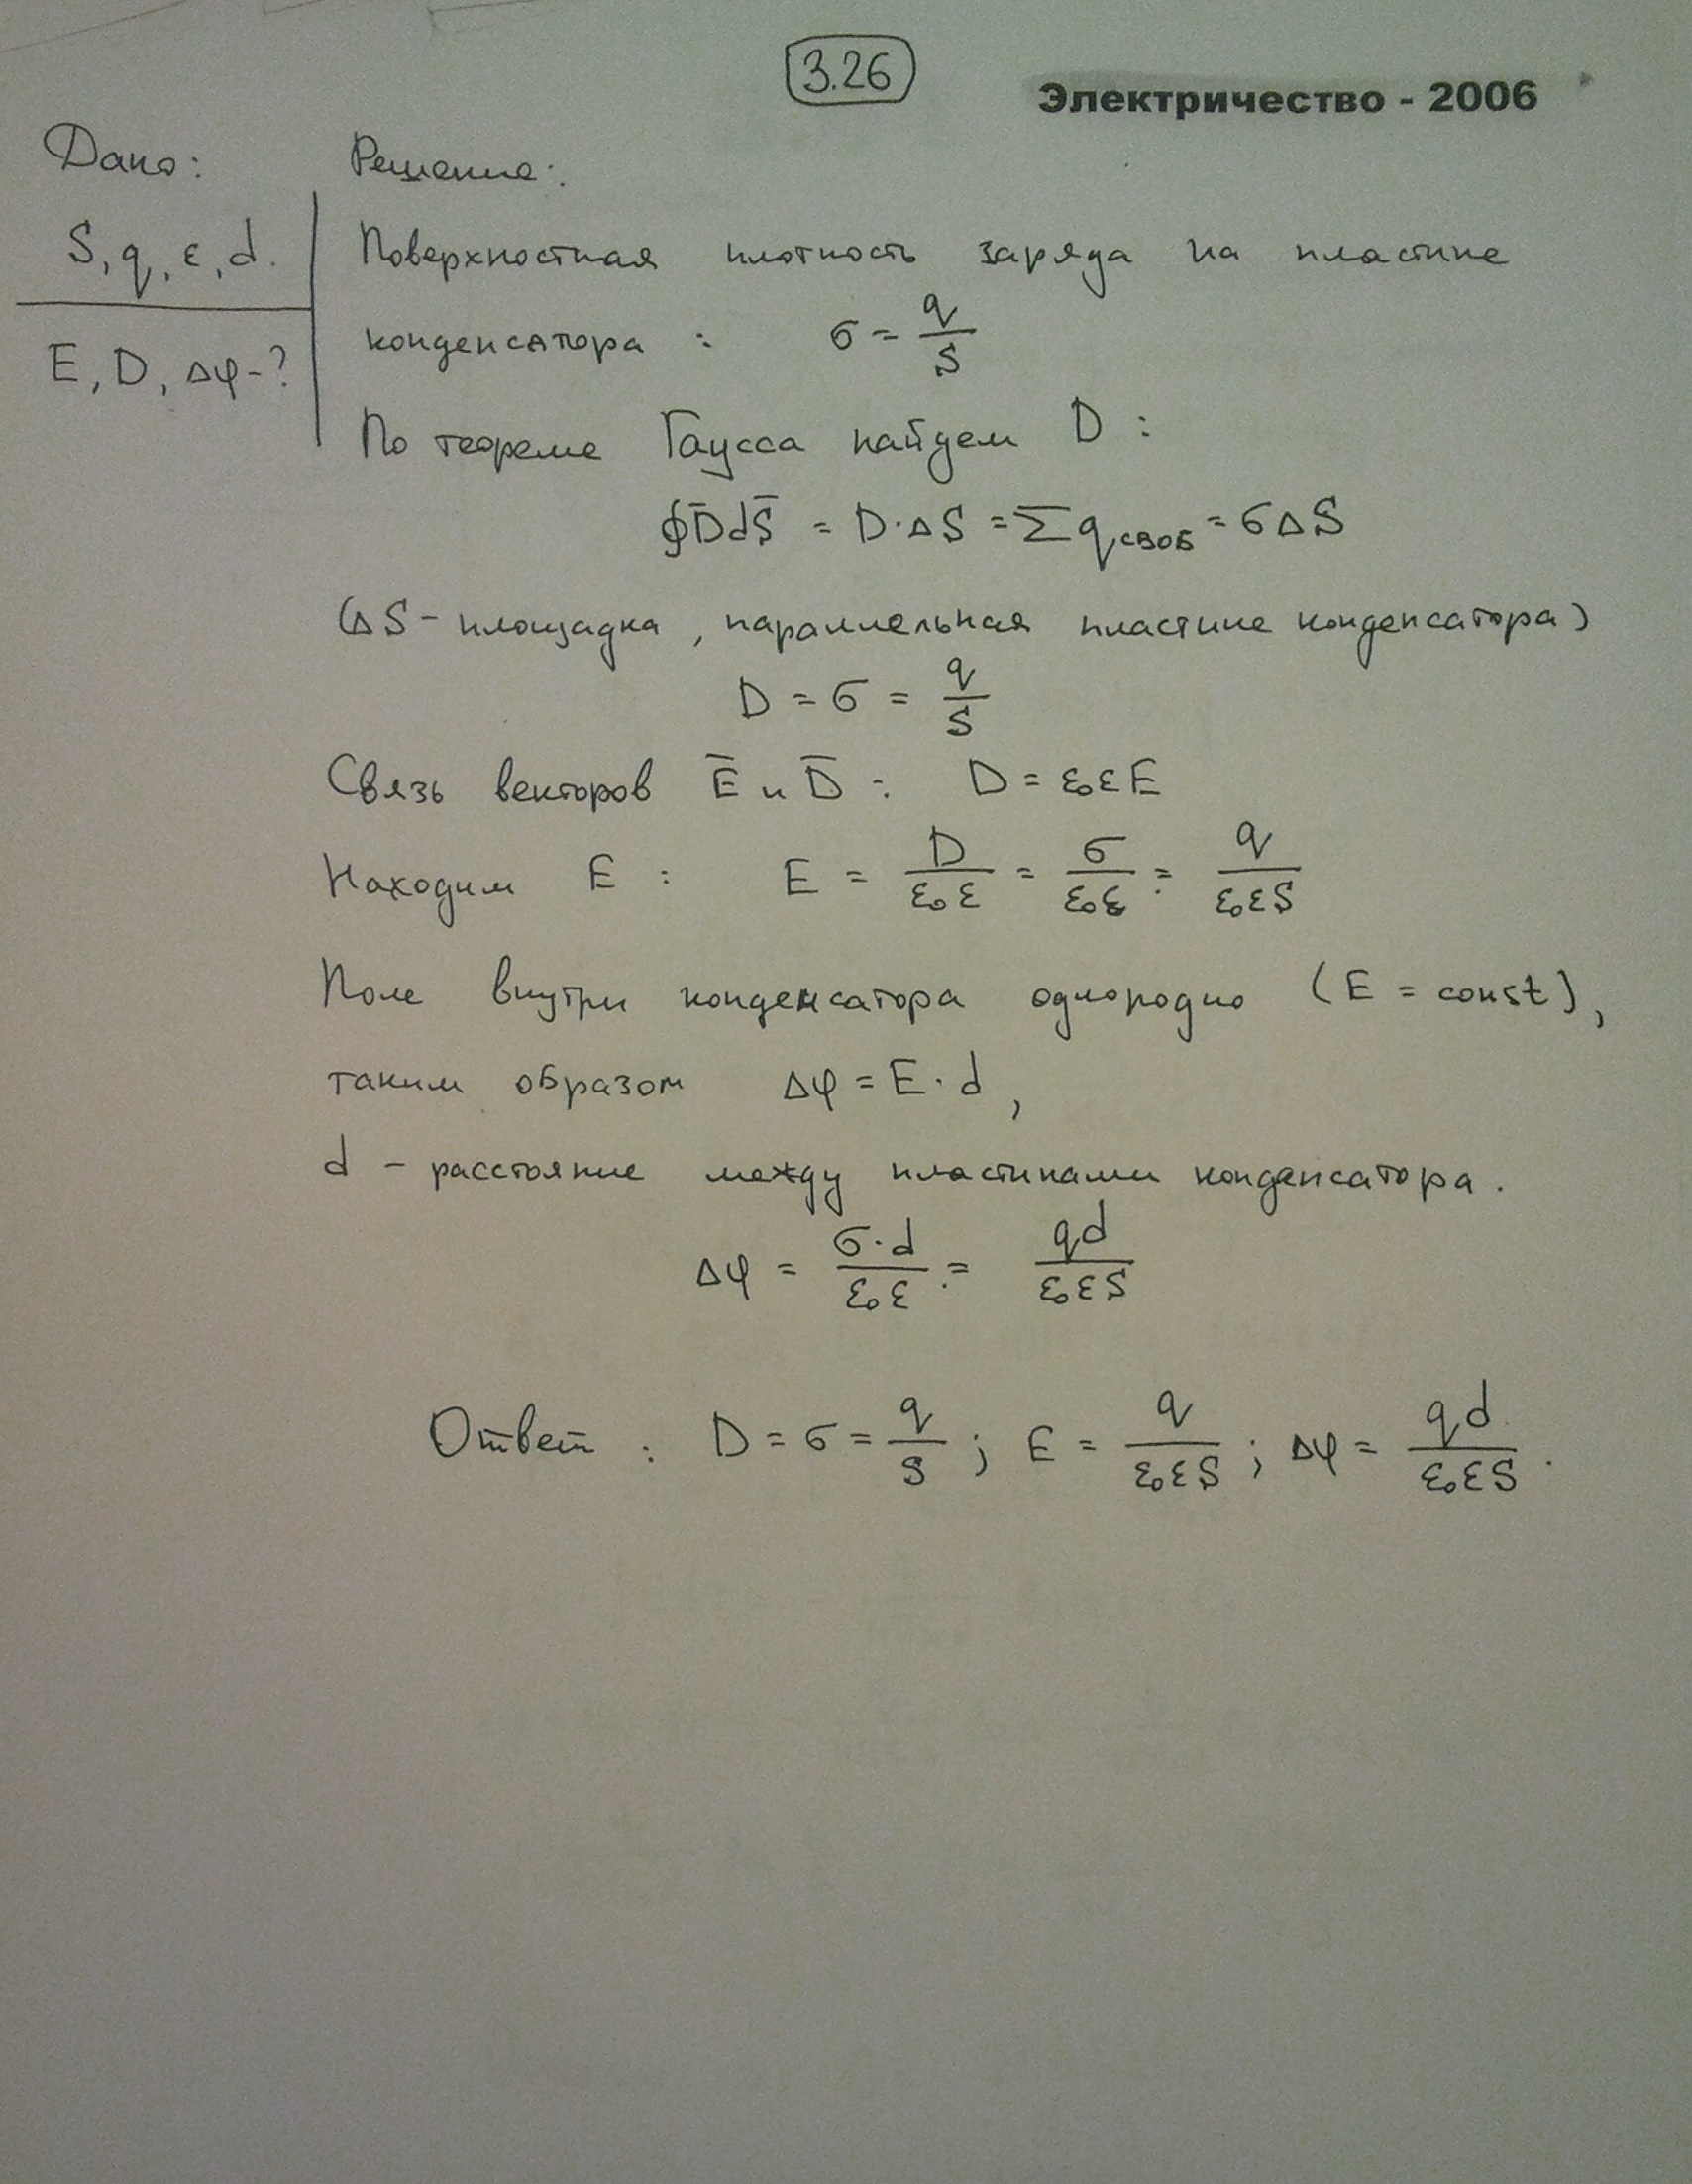 3.26
Электричество - 2006
Дано:
S, q, ε, d.
E, D, Δφ-?
Решение:
Поверхностная плотность заряда на пластине
конденсатора : σ = q/S
По теореме Гаусса найдем D :
∮D̅dS̅ = D·ΔS = Σqсвоб = σΔS
(ΔS - площадка, параллельная пластине конденсатора)
D = σ = q/S
Связь векторов E̅ и D̅ : D = ε₀εE
Находим E : E = D/ε₀ε = σ/ε₀ε = q/ε₀εS
Поле внутри конденсатора однородно (E = const),
таким образом Δφ = E·d,
d - расстояние между пластинами конденсатора.
Δφ = σ·d/ε₀ε = qd/ε₀εS
Ответ : D = σ = q/S ; E = q/ε₀εS ; Δφ = qd/ε₀εS .